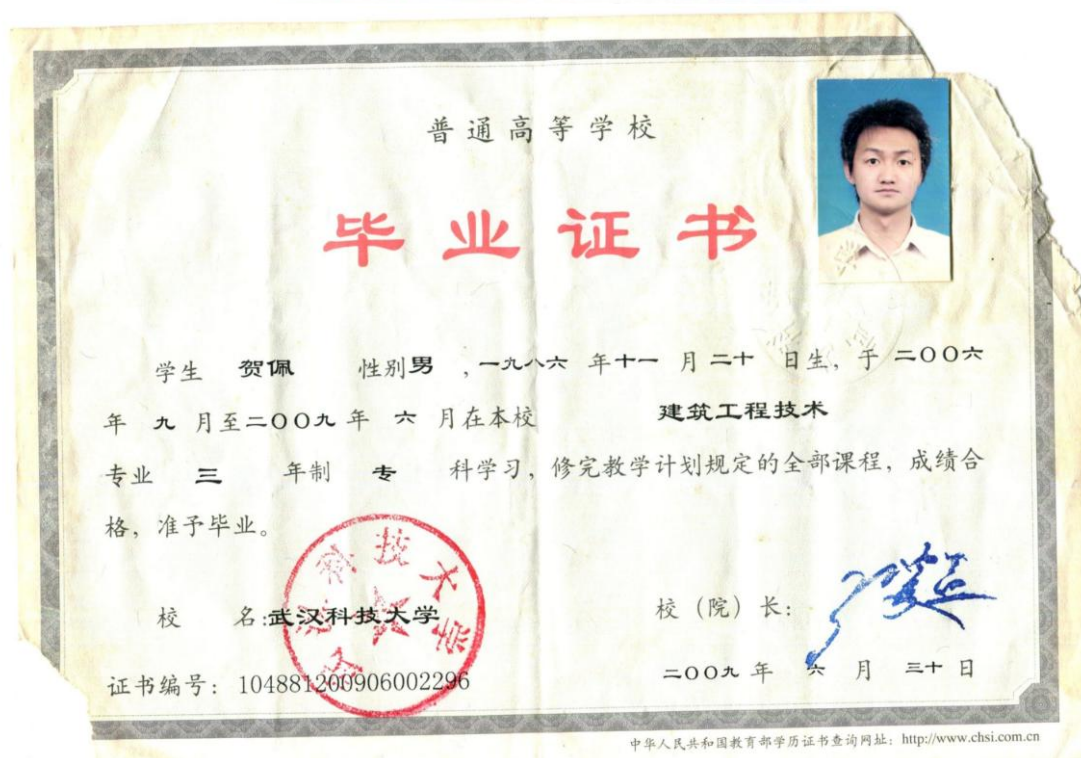 普通高等学校
毕业证书
学生 贺佩 性别男，一九八六 年十一 月 二十 日生，于 二〇〇六
年 九 月至二〇〇九 年 六 月在本校 建筑工程技术
专业 三 年制 专 科学习，修完教学计划规定的全部课程，成绩合
格，准予毕业。
校 名:武汉科技大学
校（院）长：
证书编号：104881200906002296
二〇〇九 年 六 月 三十 日
中华人民共和国教育部学历证书查询网址：http://www.chsi.com.cn
武汉科技大学